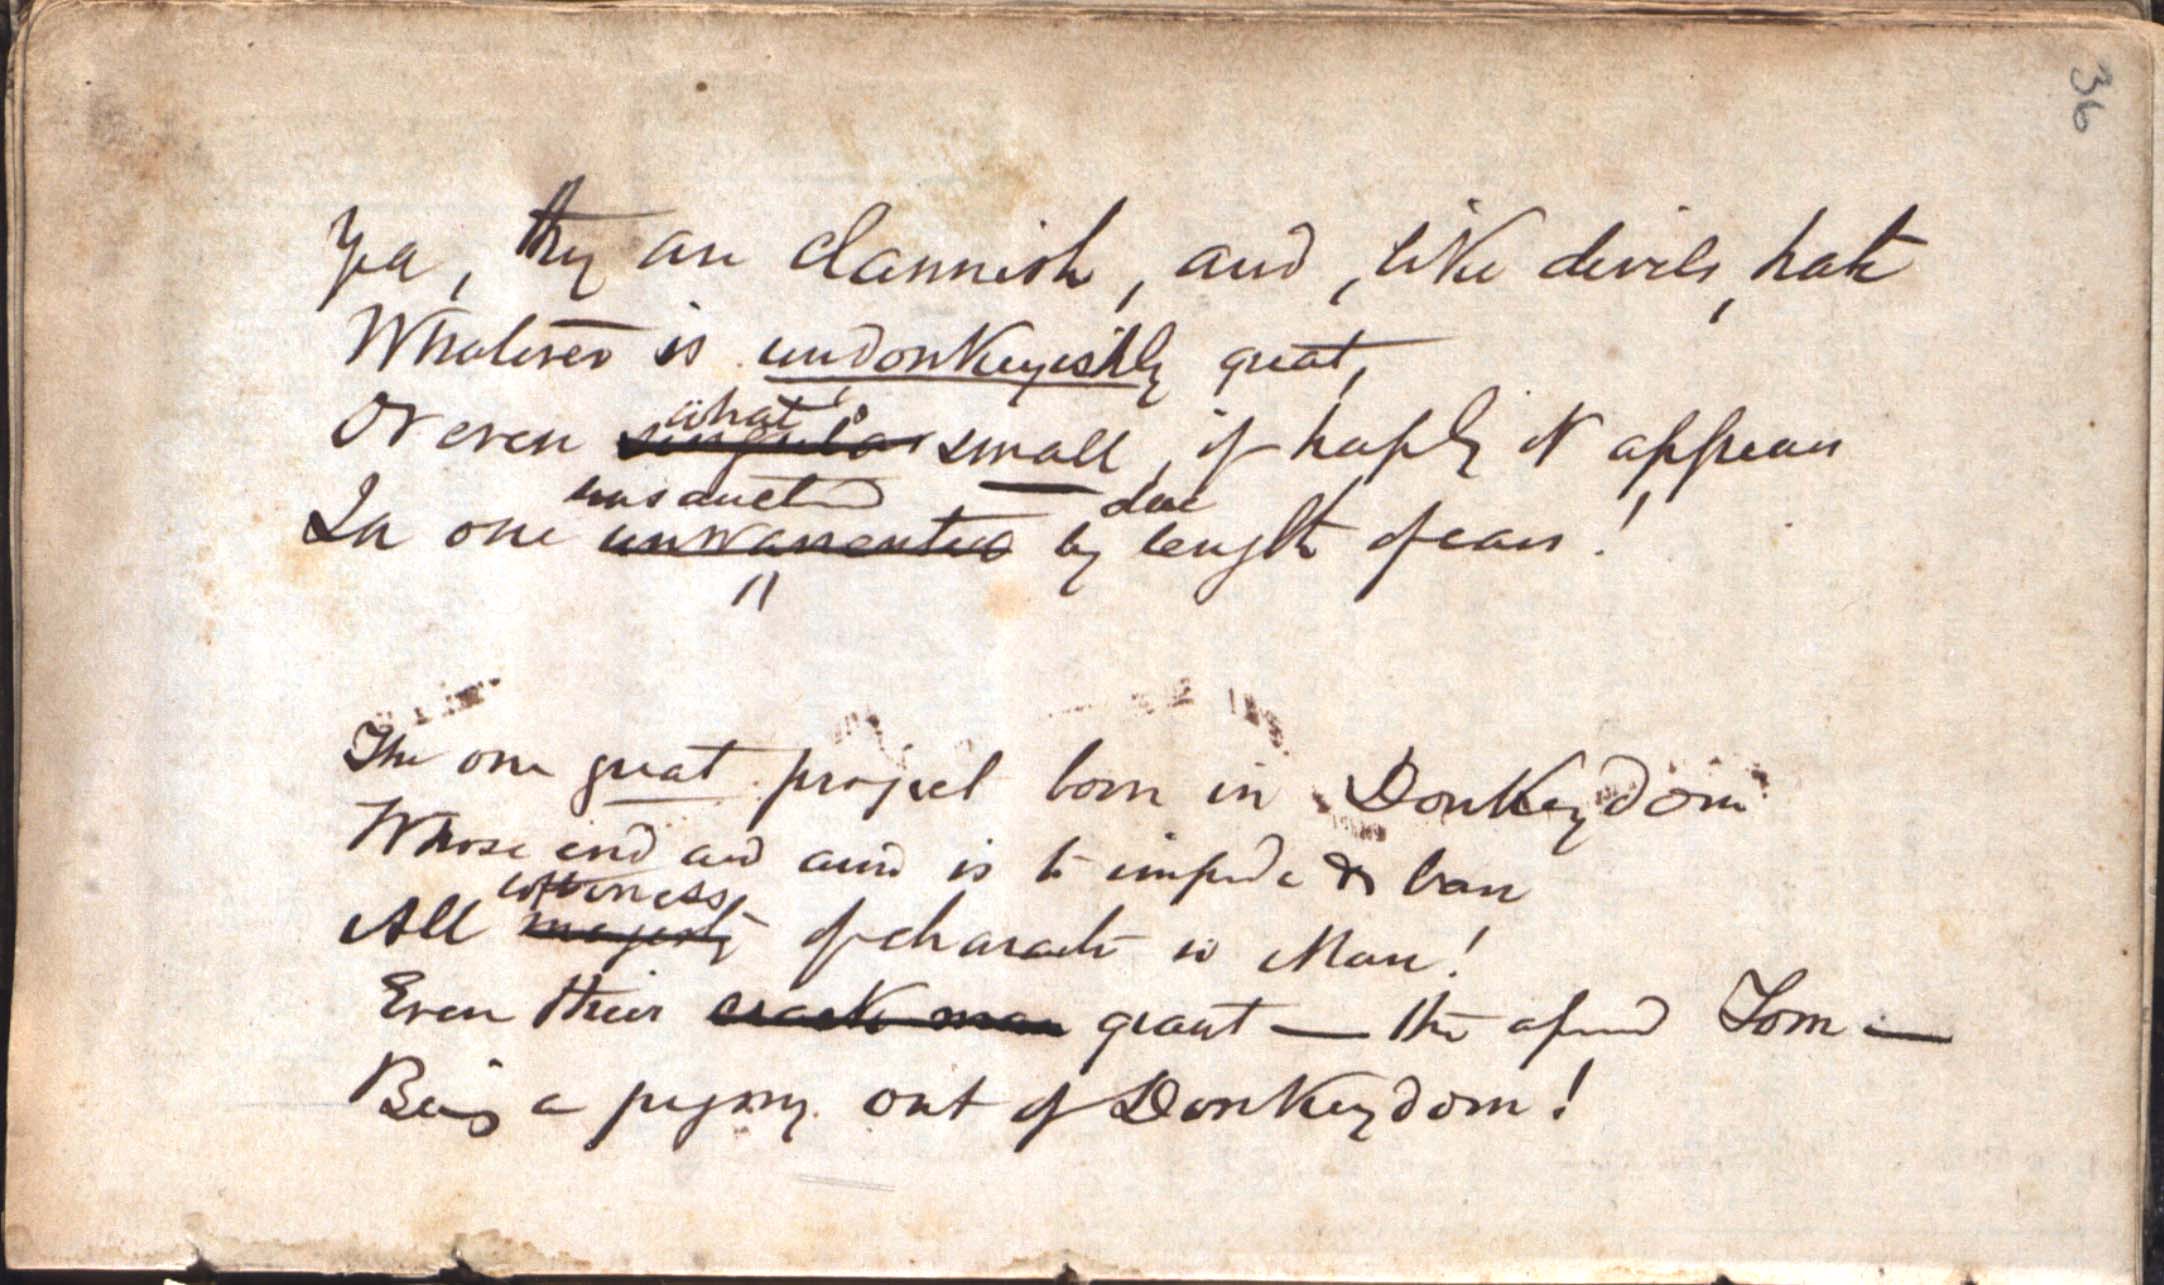 36
Yea, they are clannish, and, like devils, hate
Whatever is undonkeyishly great,
what's
Or even singular small, if haply it appears
unsanctioned due
In one unwarranted by length of ears!
The one great project born in Donkeydom
Whose end and aim is to impede & ban
loftiness
All majesty of character in Man!
Even their crack man grant — the Tom —
Being a pigmy out of Donkeydom!